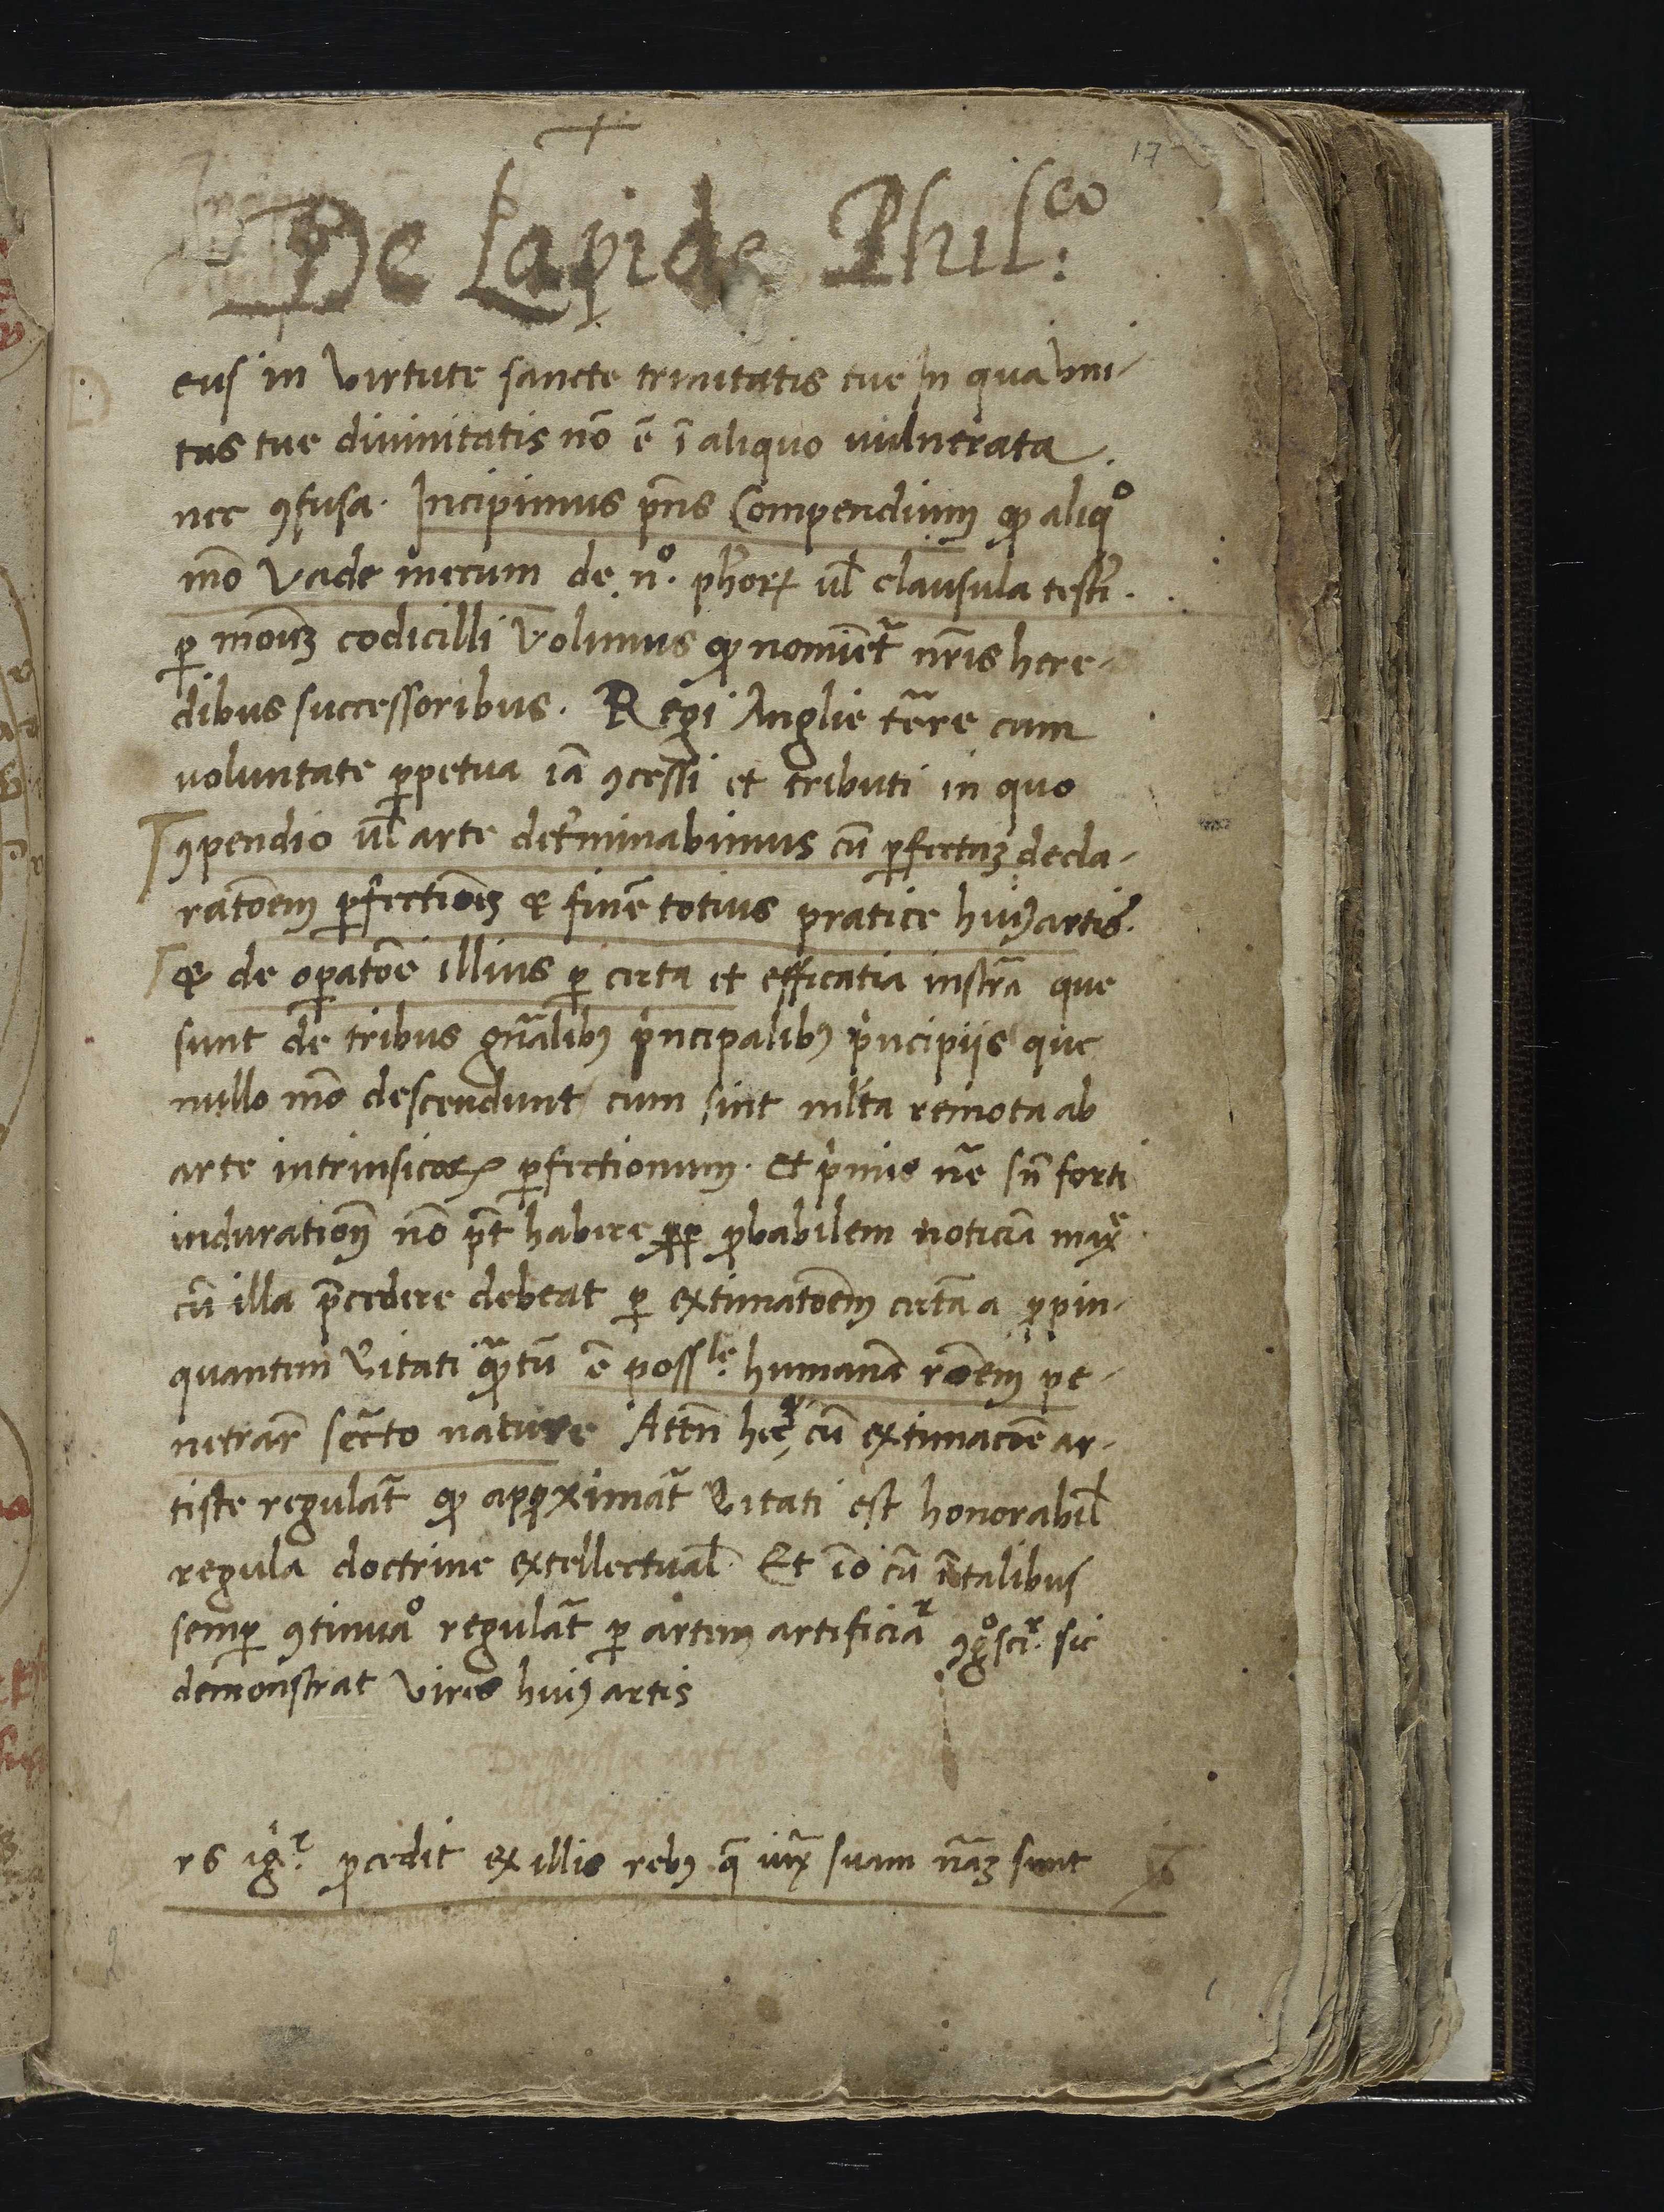 17
De Lapide Phil:co
eus in virtute sancte trinitatis tue In qua vni-
tas tue diuinitatis nō ē ī aliquo vulnerata.
nec ꝯfusa. Incipimus pn̄s Compendium ꝙ aliqͦ
mō Vade mecum de nͦ. ph̄orꝝ ul̄ clausula testī.
ꝑ codicilli Volumus ꝙ nominēt nr̄is here-
dibus successoribus. Regi Anglie cum
voluntate ꝑpetua iā ꝯcessi et tributi in quo
ꝯpendio ul̄ arte det̄minabimus cū ꝑfectaꝫ decla-
ratōem ꝑfectiōeꝫ & finē totius pratice huiꝰ artis.
& de oꝑatōe illius ꝑ certa et efficatia instr̄a que
sunt de tribus gn̄alibꝰ pͥncipalibꝰ pͥncipijs que
nullo mō descendunt cum sint ml̄ta remota ab
arte intrinsicorꝝ ꝑfectionum. Et pͥmis nē sn̄ forti
indurationē nō pt̄ habere ꝓbabilem noticiā maxͤ
cū illa p̄cedere debeat ꝑ extimatōem certā a ꝓpin-
quantem v̄itati qᷓtū ē possle humanā rōem pe-
netrar̄ secr̄to nature Attn̄ hec cū extimacōe ar-
tiste regulāt ꝙ apꝓximāt v̄itati est honorabil̄
regula doctrine extellectual̄. Et iō cū talibus
semꝑ ꝯtinuaͦ regulāt ꝑ artem artificiā ꝯgͦscir. sic
demonstrat vires huiꝰ artis
rs igr. ꝓcedit ex illis rebꝰ q̄ iux̄ suam nāꝫ sunt